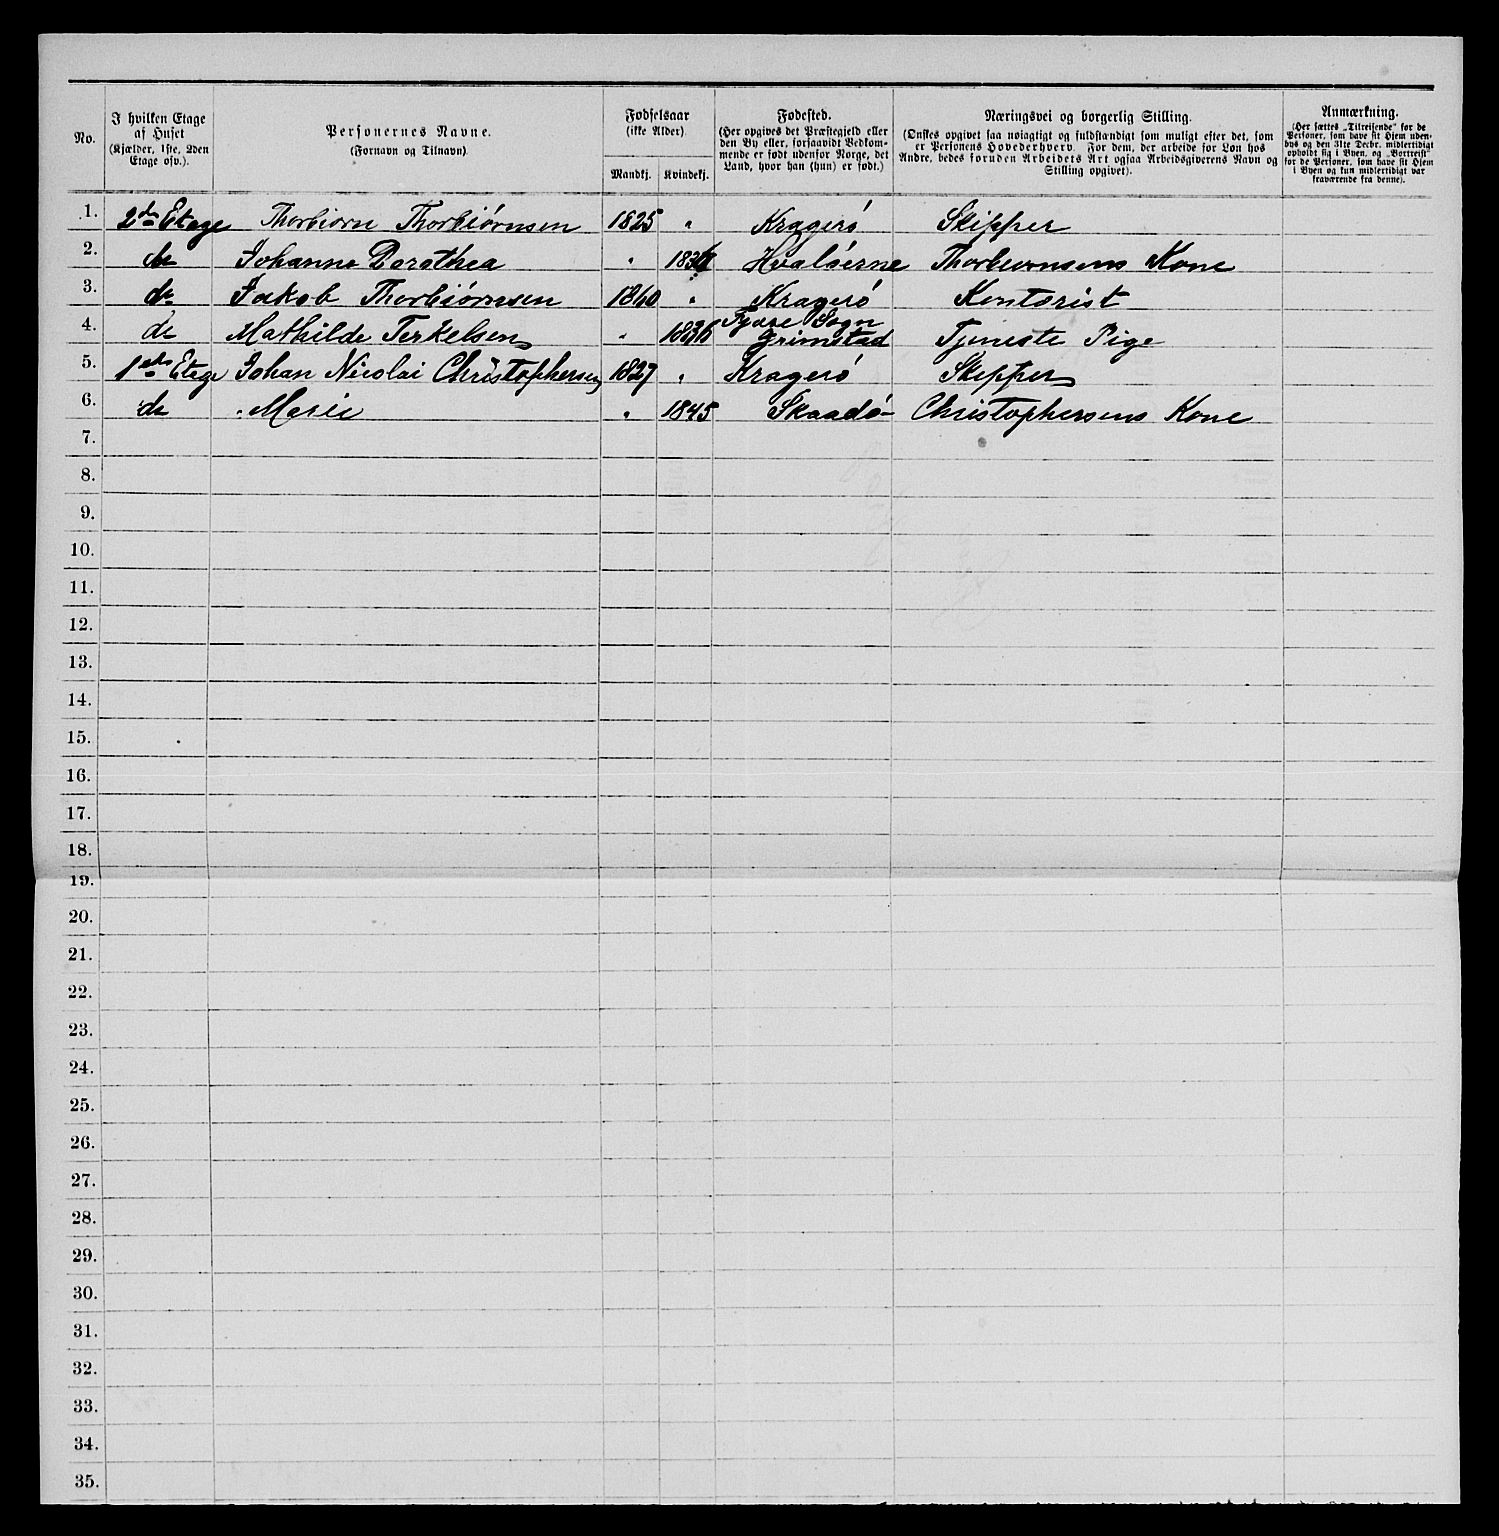 No.
I hvilken Etage af Huset (Kjælder, 1ste, 2den Etage osv.).
Personernes Navne. (Fornavn og Tilnavn).
Fødselsaar (ikke Alder).
Mandkj. Kvindekj.
Fødested. (Her opgives det Præstegjeld eller den By eller, forsaavidt Vedkommende er født udenfor Norge, det Land, hvor han (hun) er født.)
Næringsvei og borgerlig Stilling. (Ønskes opgivet saa nøiagtigt og fuldstændigt som muligt efter det, som er Personens Hovederhverv. For dem, der arbeide for Løn hos Andre, bedes foruden Arbeidets Art ogsaa Arbeidsgiverens Navn og Stilling opgivet).
Anmærkning. (Her sættes „Tilreisende" for de Personer, som have sit Hjem udenbys og den 31te Decbr. midlertidigt opholdt sig i Byen, og „Bortreist" for de Personer, som have sit Hjem i Byen og kun midlertidigt var fraværende fra denne).
1. 2den Etage Thorbiørn Thorbiørnsen 1825 " Kragerø Skipper
2. do Johanne Dorothea " Hvaløerne Thorbiørnsens Kone
3. do Jakob Thorbiørnsen 1860 " Kragerø Kontorist
4. do Mathilde Terkelsen " 1836 Fjære Sogn Grimstad Tjeneste Pige
5. 1ste Etage Johan Nicolai Christophersen 1827 " Kragerø Skipper
6. do Marie " 1845 Skaadø Christophersens Kone
7.
8.
9.
10.
11.
12.
13.
14.
15.
16.
17.
18.
19.
20.
21.
22.
23.
24.
25.
26.
27.
28.
29.
30.
31.
32.
33.
34.
35.